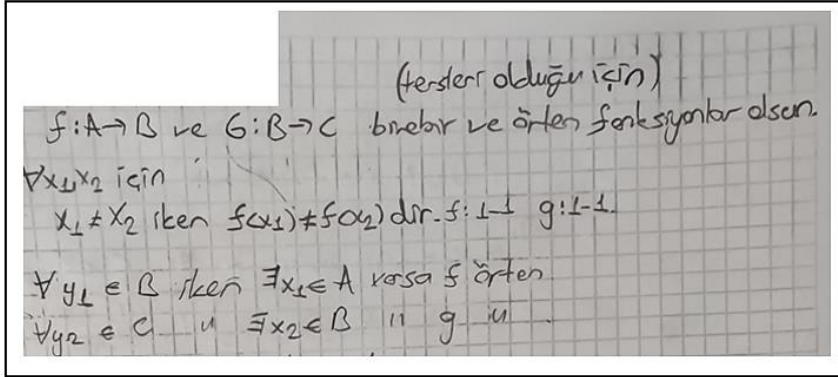 (tersleri olduğu için)
f: A→B ve G: B→C birebir ve örten fonksiyonlar olsun.
∀x₁,x₂ için
x₁ ≠ x₂ iken f(x₁) ≠ f(x₂) dir. f: 1-1 g: 1-1.
∀y₁ ∈ B iken ∃x₁ ∈ A varsa f örten
∀y₂ ∈ C " ∃x₂ ∈ B " g "